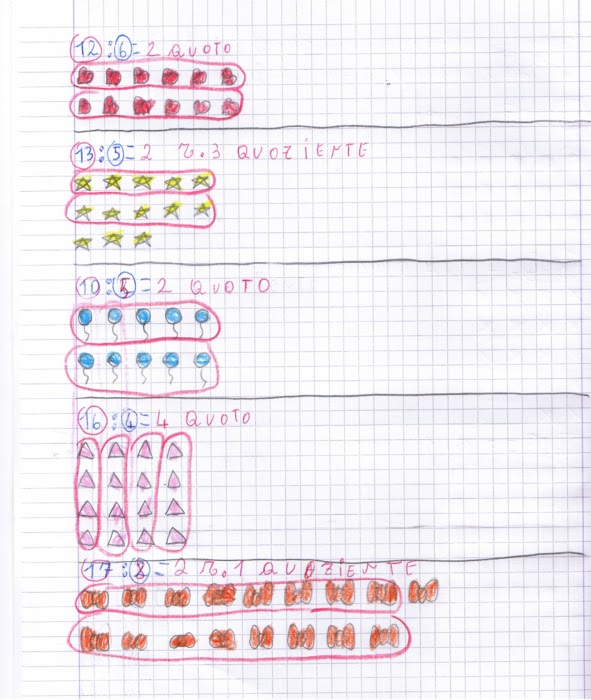 12:6=2 QUOTO
13:5=2 r.3 QUOZIENTE
10:5=2 QUOTO
16:4=4 QUOTO
17:8=2 r.1 QUOZIENTE